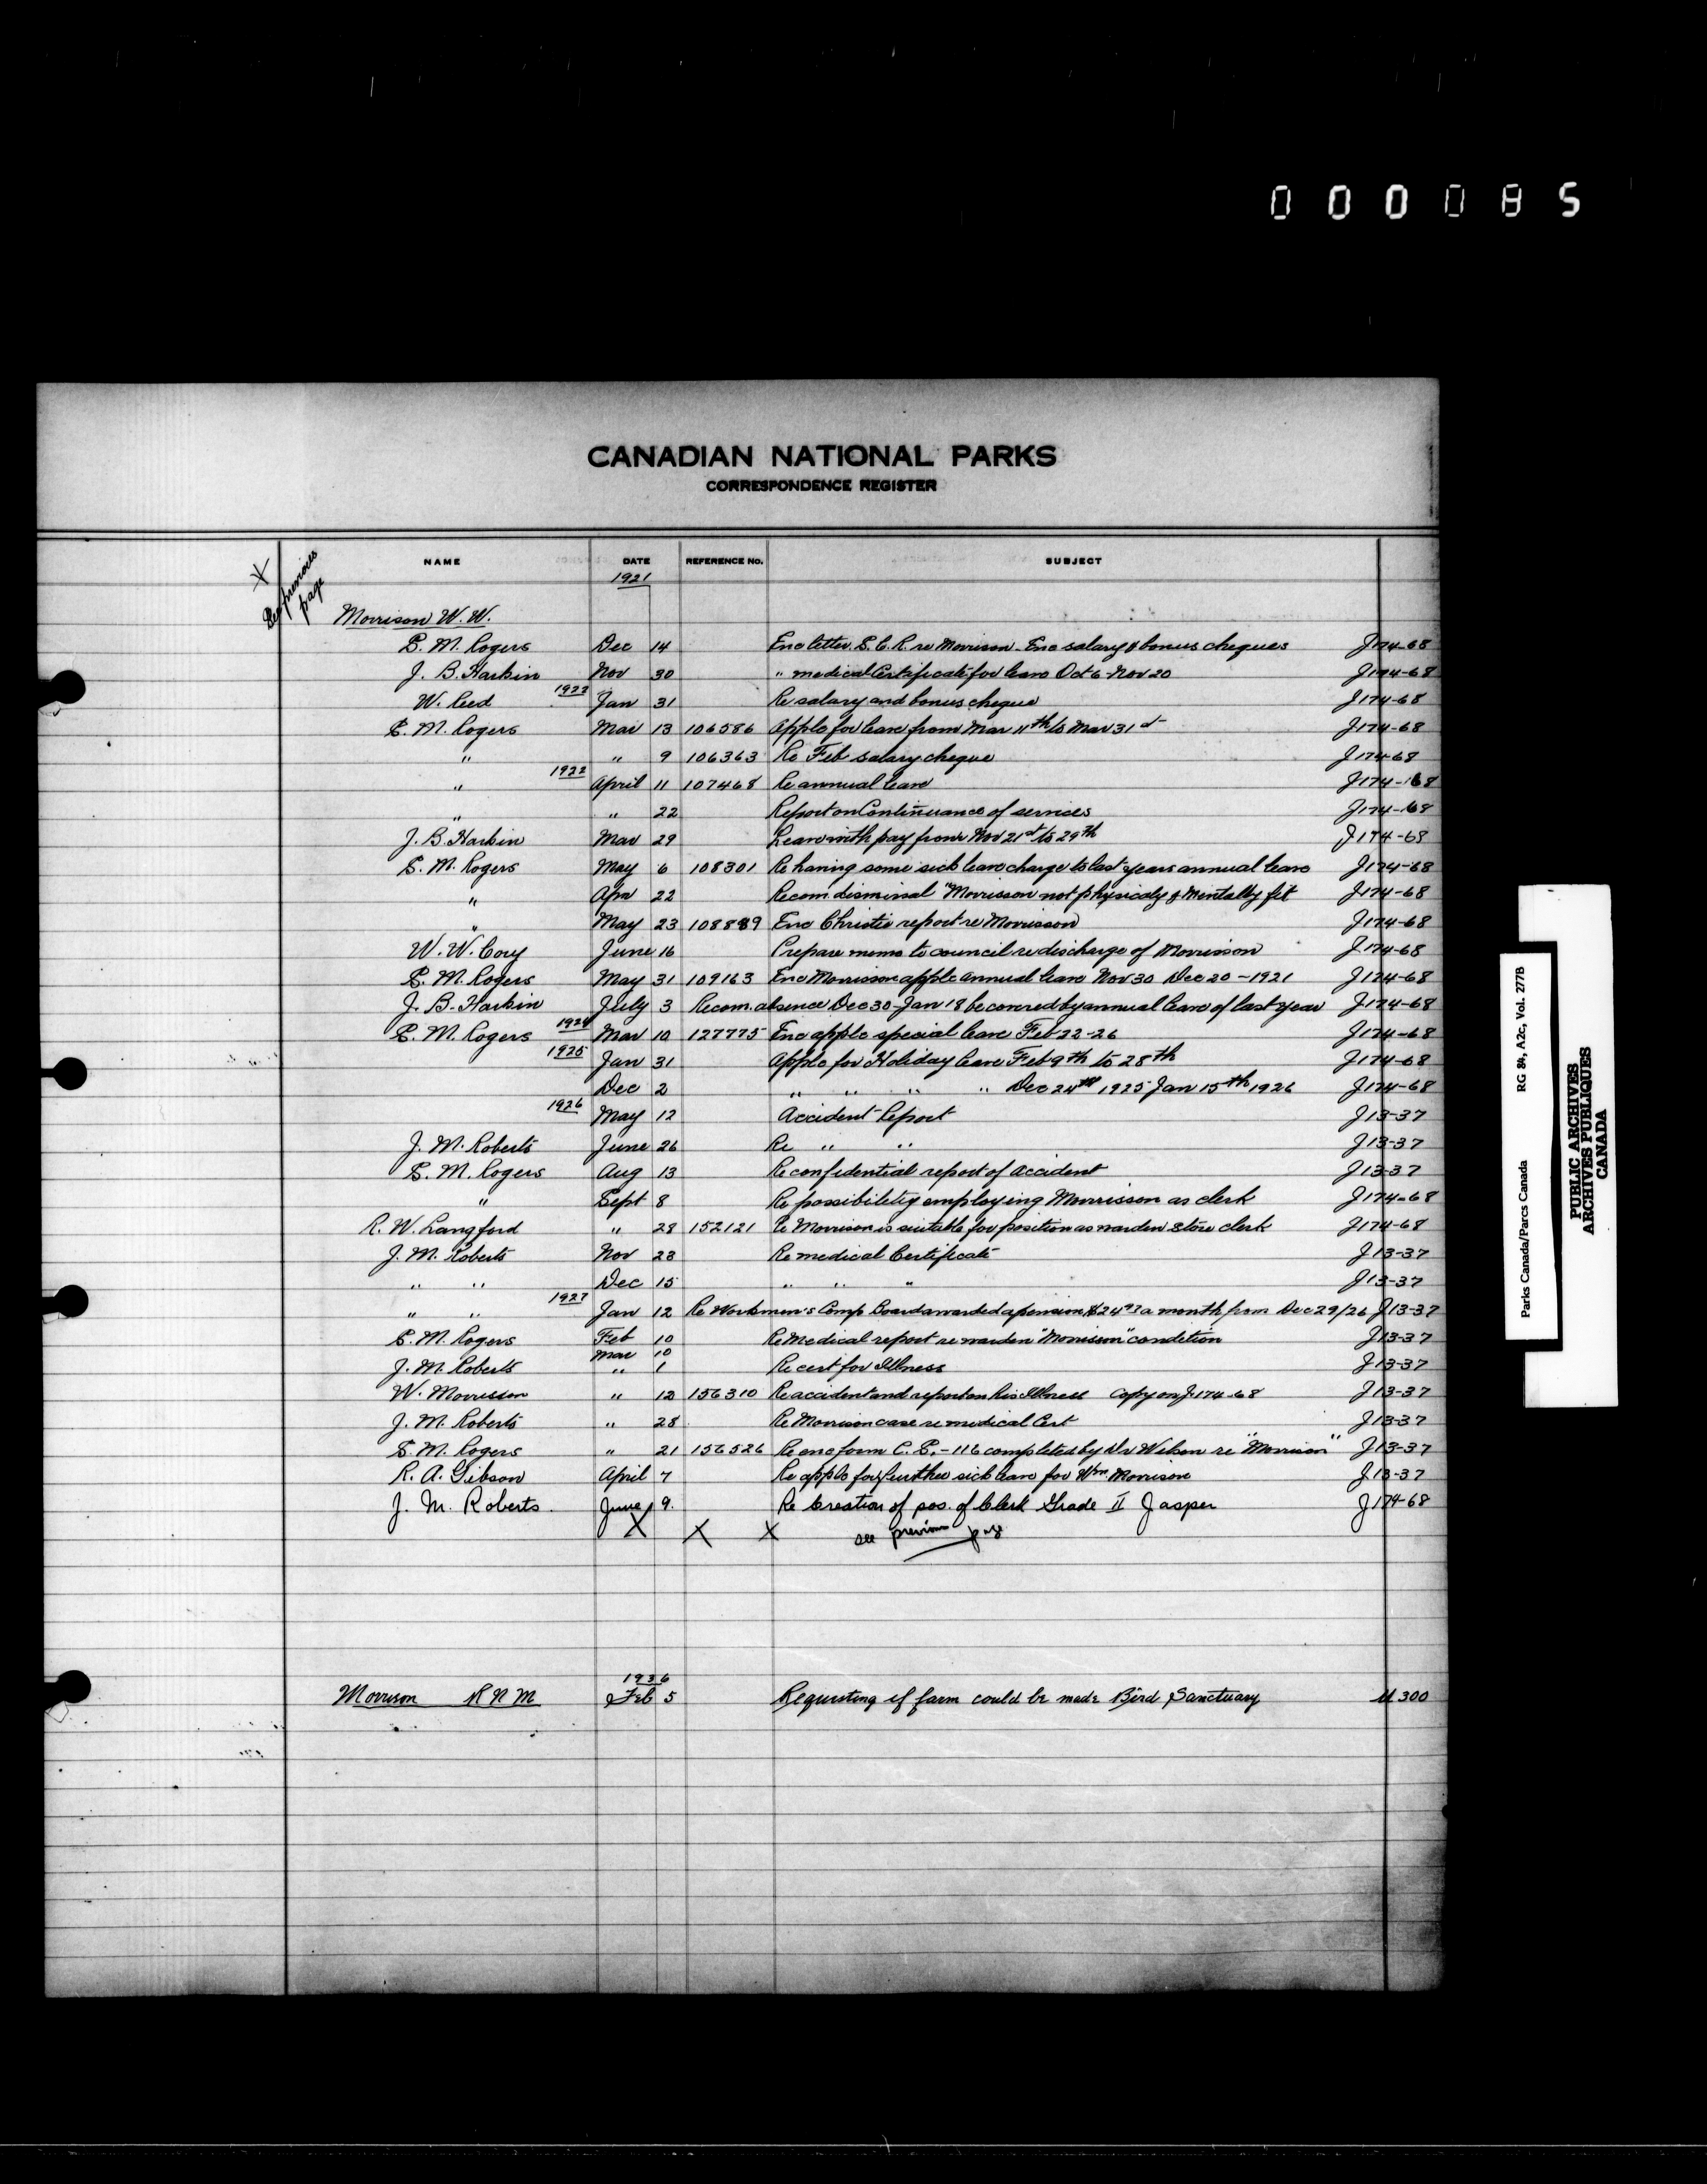 000085
CANADIAN NATIONAL PARKS
CORRESPONDENCE REGISTER
NAME DATE REFERENCE No. SUBJECT
1921
X See previous page
Morrison W. W.
S. M. Rogers Dec 14 Enc letter S. C. R. re Morrison - Enc salary & bonus cheques J174-68
J. B. Harkin Nov 30 " medical Certificate for leave Oct 6 - Nov 20 J174-68
W. Reed 1922 Jan 31 Re salary and bonus cheque J174-68
S. M. Rogers Mar 13 106586 Applc for leave from Mar 11th to Mar 31st J174-68
" " 9 106363 Re Feb salary cheque J174-68
" 1922 April 11 107468 Re annual leave J174-168
" " 22 Report on Continuance of services J174-168
J. B. Harkin Mar 29 Leave with pay from Nov 21st to 29th J174-68
S. M. Rogers May 6 108301 Re having some sick leave charge to last years annual leave J174-68
" Apr 22 Recom. dismissal "Morrisson not physicaly & Mentally fit J174-68
" May 23 108889 Enc Christie report re Morrisson J174-68
W. W. Cory June 16 Prepare memo to council re discharge of Morrison J174-68
S. M. Rogers May 31 109163 Enc Morrison applc annual leave Nov 30 Dec 20 - 1921 J174-68
J. B. Harkin July 3 Recom. absence Dec 30 - Jan 18 be covered by annual leave of last year J174-68
S. M. Rogers 1924 Mar 10 127775 Enc applc special leave Feb 22-26 J174-68
1925 Jan 31 Applc for Holiday leave Feb 9th to 28th J174-68
Dec 2 " " " " Dec 24th 1925 Jan 15th 1926 J174-68
1926 May 12 Accident Report J13-37
J. M. Roberts June 26 Re " " J13-37
S. M. Rogers Aug 13 Re confidential report of accident J13-37
" Sept 8 Re possibility employing Morrisson as clerk J174-68
R. W. Langford " 28 152121 Re Morrison is suitable for position as warden store clerk J174-68
J. M. Roberts Nov 23 Re medical Certificate J13-37
" " Dec 15 " " " J13-37
" " 1927 Jan 12 Re Workmen's Comp. Board awarded a pension $24 a month from Dec 29/26 J13-37
S. M. Rogers Feb 10 Re Medical report re warden "Morrison" condition J13-37
Mar 10
J. M. Roberts " 1 Re cert for Illness J13-37
W. Morrisson " 12 156310 Re accident and report on his Illness Copy on J-174-68 J13-37
J. M. Roberts " 28 Re Morrison case re medical Cert J13-37
S. M. Rogers " 21 156526 Re enc form C. S. - 116 completed by Dr Wilson re "Morrison" J13-37
R. A. Gibson April 7 Re applc for further sick leave for Wm. Morrison J13-37
J. M. Roberts. June 9. Re Creation of pos. of Clerk Grade II Jasper J174-68
X X X see previous page
1936
Morrison R N M Feb 5 Requesting if farm could be made Bird Sanctuary U 300
Parks Canada/Parcs Canada RG 84, A2c, Vol. 277B
PUBLIC ARCHIVES
ARCHIVES PUBLIQUES
CANADA